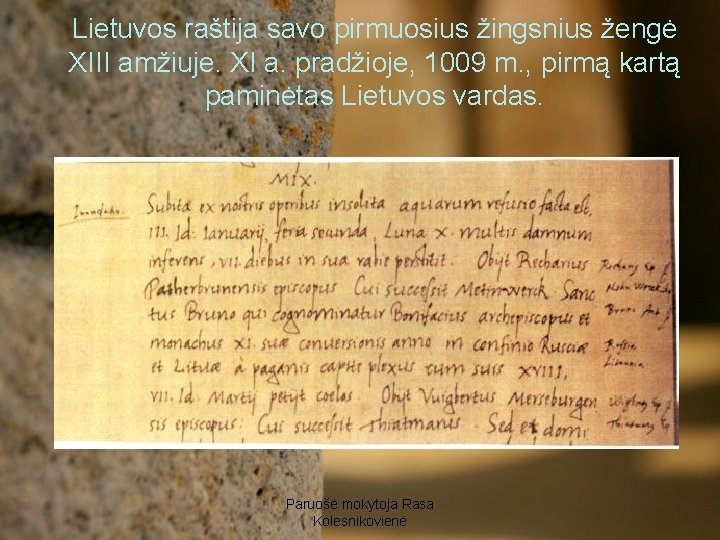 Lietuvos raštija savo pirmuosius žingsnius žengė
XIII amžiuje. XI a. pradžioje, 1009 m. , pirmą kartą
paminėtas Lietuvos vardas.
MIX.
Inundatio. Subita ex nostris operibus insolita aquarum refusio facta est,
III. Id. Ianuarij, feria secunda, Luna X. multis damnum
inferens, VII. diebus in sua rabie perstitit. Obijt Recharius
Patherbrunensis episcopus Cui successit Metinwerck. Sanc
tus Bruno qui cognominatur Bonifacius archepiscopus et
monachus XI. suæ conversionis anno in confinio Rusciæ
et Lituæ à paganis capite plexus cum suis XVIII,
VII. Id. Martij petijt coelos. Obijt Vuigbertus Merseburgen
sis episcopus: Cui successit Thiatmarus. Sed et domi
Russia
Lituania
Paruošė mokytoja Rasa
Kolesnikovienė